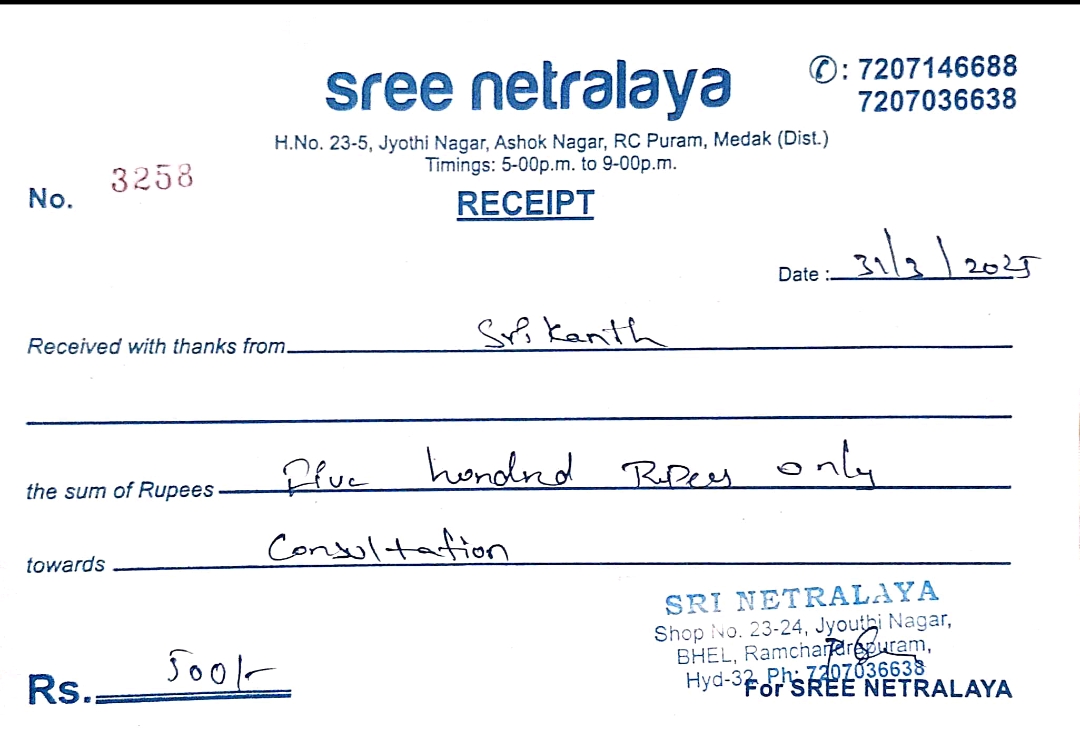 sree netralaya
✆: 7207146688
7207036638
H.No. 23-5, Jyothi Nagar, Ashok Nagar, RC Puram, Medak (Dist.)
Timings: 5-00p.m. to 9-00p.m.
No. 3258
RECEIPT
Date : 31/3/2025
Received with thanks from Srikanth
the sum of Rupees Five hondred Rupees only
towards Consultation
SRI NETRALAYA
Shop No. 23-24, Jyouthi Nagar,
BHEL, Ramchandrapuram,
Hyd-32, Ph: 7207036638
Rs. 500/-
For SREE NETRALAYA